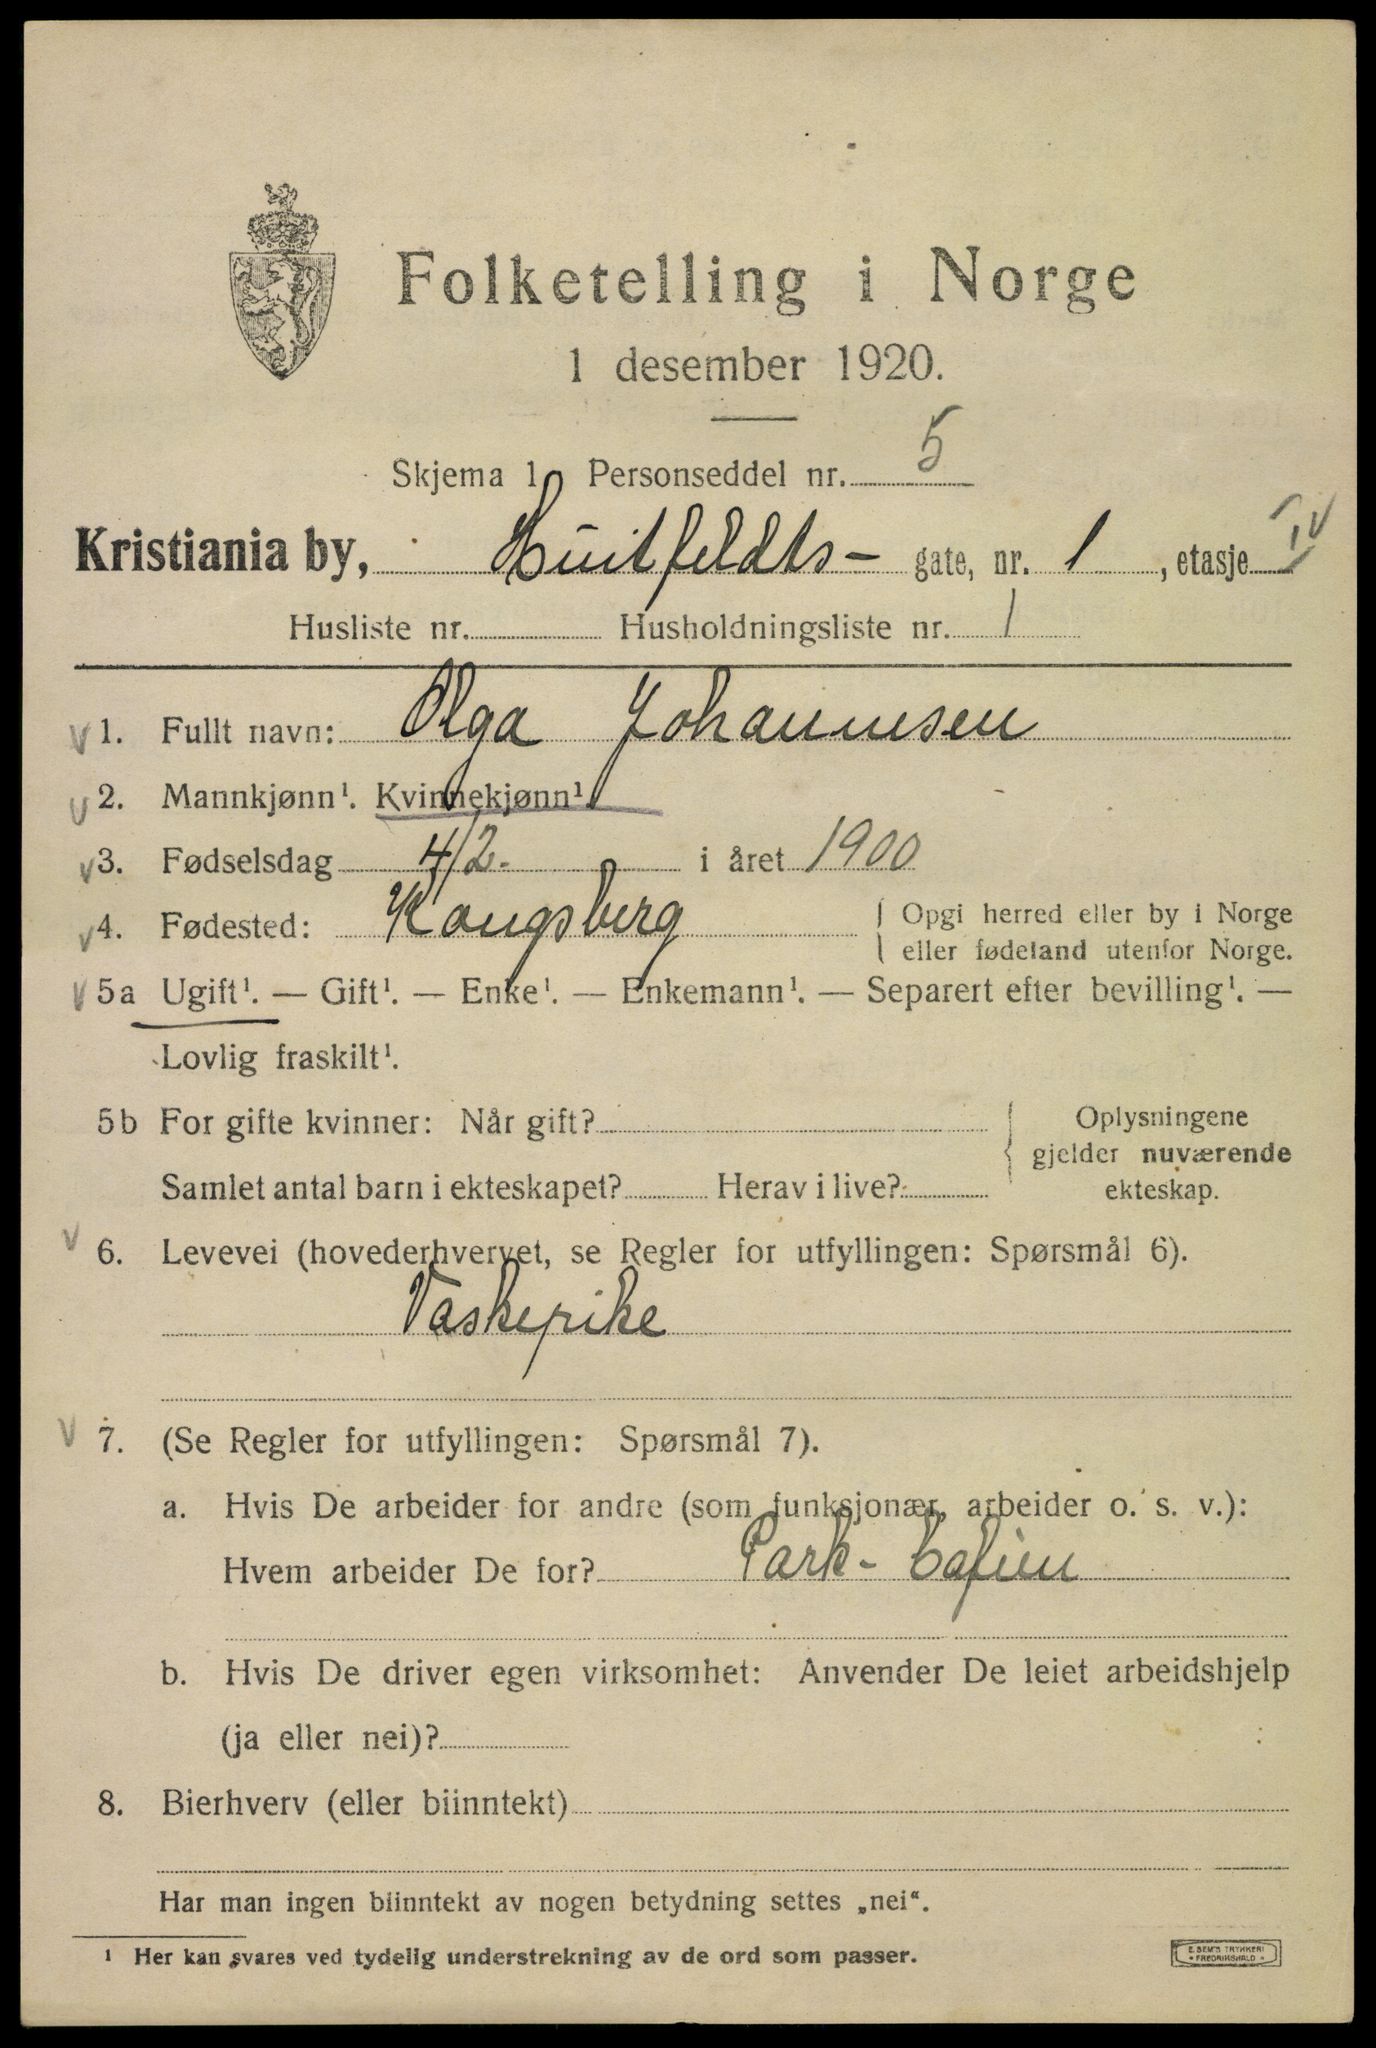 Folketelling i Norge
1 desember 1920.
Skjema 1 Personseddel nr. 5
Kristiania by, Huitfeldts- gate, nr. 1, etasje IV
Husliste nr. Husholdningsliste nr. 1
V 1. Fullt navn: Olga Johannesen
V 2. Mannkjønn¹. Kvinnekjønn¹.
V 3. Fødselsdag 4/2. i året 1900
V 4. Fødested: Kongsberg { Opgi herred eller by i Norge
eller fødeland utenfor Norge.
V 5a Ugift¹. — Gift¹. — Enke¹. — Enkemann¹. — Separert efter bevilling¹. —
Lovlig fraskilt¹.
5b For gifte kvinner: Når gift? { Oplysningene
gjelder nuværende
Samlet antal barn i ekteskapet? Herav i live? ekteskap.
V 6. Levevei (hovederhvervet, se Regler for utfyllingen: Spørsmål 6).
Vaskepike
V 7. (Se Regler for utfyllingen: Spørsmål 7).
a. Hvis De arbeider for andre (som funksjonær, arbeider o. s. v.):
Hvem arbeider De for? Park-Cafeen
b. Hvis De driver egen virksomhet: Anvender De leiet arbeidshjelp
(ja eller nei)?
8. Bierhverv (eller biinntekt)
Har man ingen biinntekt av nogen betydning settes „nei“.
¹ Her kan svares ved tydelig understrekning av de ord som passer.
E. SEM'S TRYKKERI
* FREDRIKSHALD *